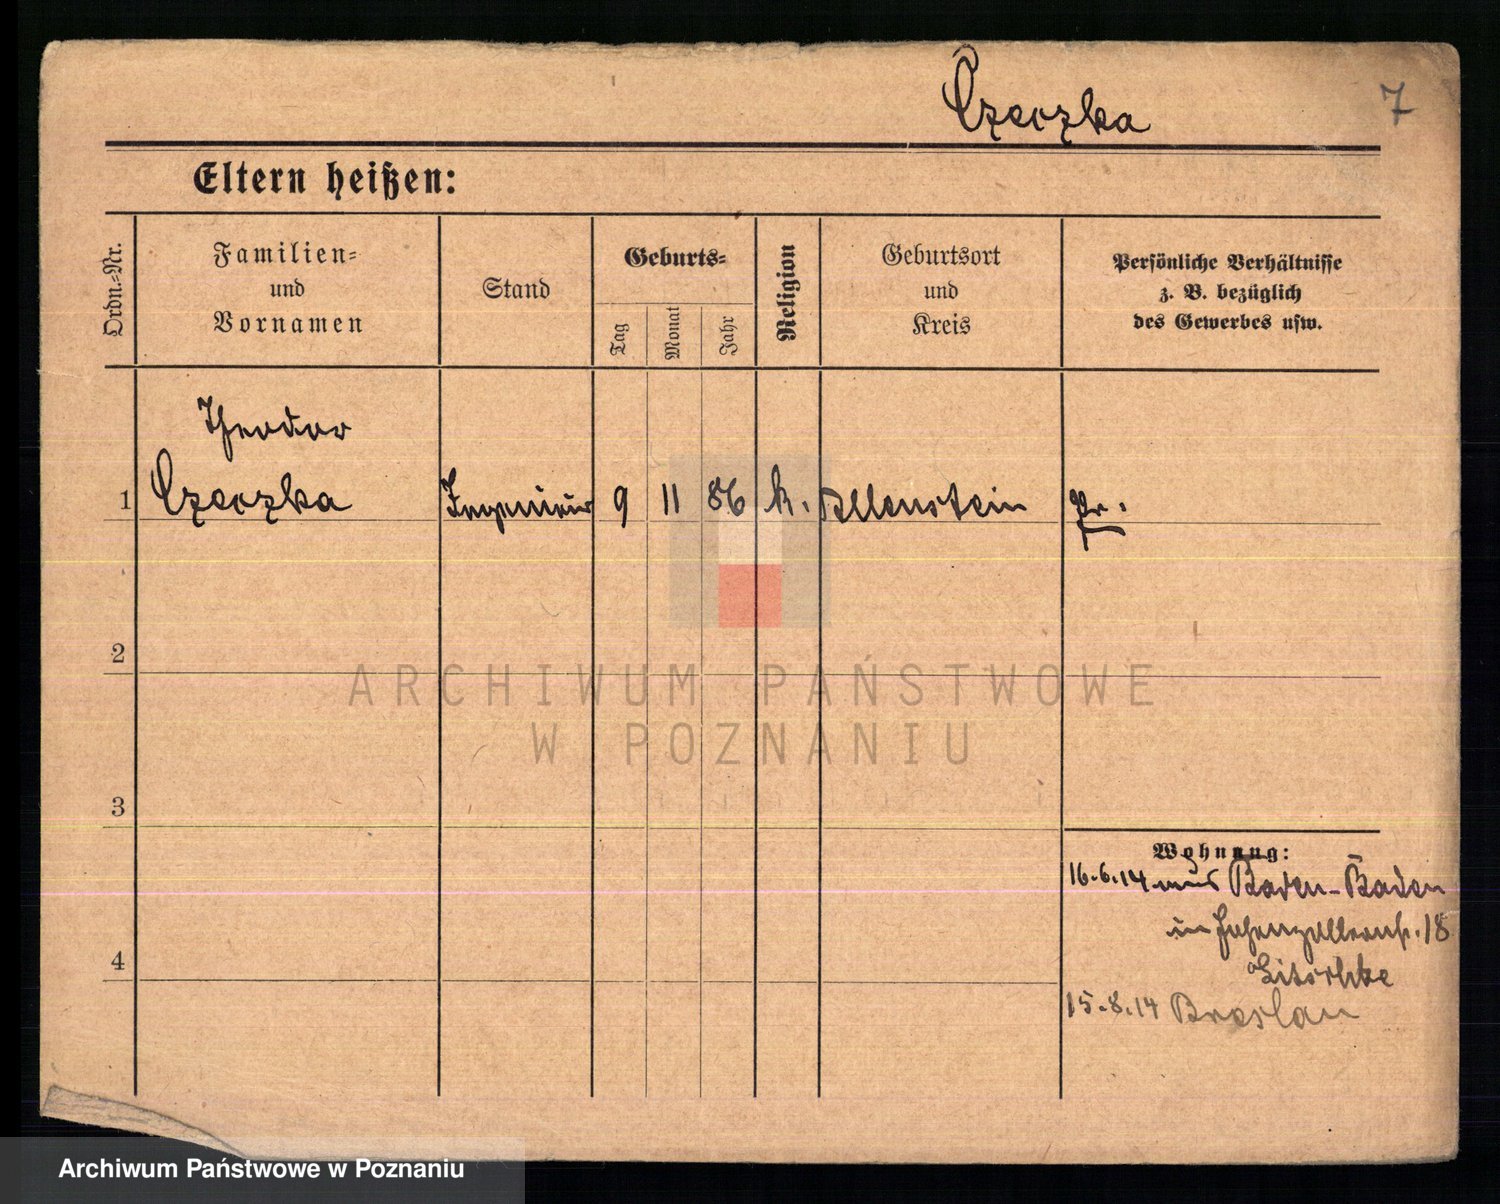 Czeczka
7
Eltern heißen:
Ordn.-Nr.
Familien-
und
Vornamen
Stand
Geburts-
Tag
Monat
Jahr
Religion
Geburtsort
und
Kreis
Persönliche Verhältnisse
z. B. bezüglich
des Gewerbes usw.
Theodor
1 Czeczka Ingenieur 9 11 86 k. Allenstein Pr.
2
ARCHIWUM PAŃSTWOWE
W POZNANIU
3
Wohnung:
16.6.14 aus Baden-Baden
in Hohenzollernstr. 18
4
15.8.14 Breslau
Archiwum Państwowe w Poznaniu